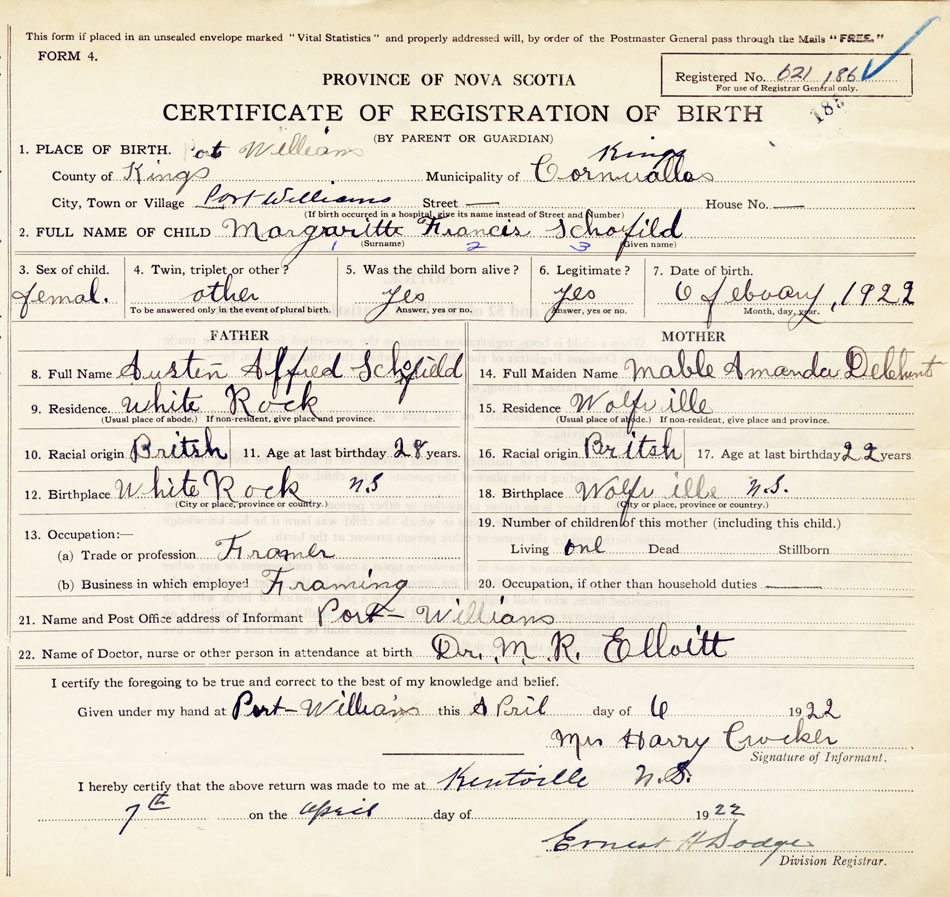 This form if placed in an unsealed envelope marked "Vital Statistics" and properly addressed will, by order of the Postmaster General pass through the Mails "FREE."
FORM 4.
Registered No. 621 186
For use of Registrar General only.
PROVINCE OF NOVA SCOTIA
CERTIFICATE OF REGISTRATION OF BIRTH
(BY PARENT OR GUARDIAN)
1. PLACE OF BIRTH. Port Williams
County of Kings Municipality of Cornwallas Kings
City, Town or Village Port Williams Street — House No. —
(If birth occurred in a hospital, give its name instead of Street and Number)
2. FULL NAME OF CHILD Margaritte Francis Schofild
1 (Surname) 2 3 (Given name)
3. Sex of child. 4. Twin, triplet or other? 5. Was the child born alive? 6. Legitimate? 7. Date of birth.
femal. other yes yes 6 febuary, 1922
To be answered only in the event of plural birth. Answer, yes or no. Answer, yes or no. Month, day, year.
FATHER MOTHER
8. Full Name Austen Alfred Schofield 14. Full Maiden Name Mable Amanda Delehunt
9. Residence. White Rock 15. Residence Wolfville
(Usual place of abode.) If non-resident, give place and province. (Usual place of abode.) If non-resident, give place and province.
10. Racial origin Britsh 11. Age at last birthday 28 years. 16. Racial origin Britsh 17. Age at last birthday 22 years
12. Birthplace White Rock N.S 18. Birthplace Wolfville N.S.
(City or place, province or country.) (City or place, province or country.)
13. Occupation:— 19. Number of children of this mother (including this child.)
(a) Trade or profession Framer Living one Dead Stillborn
(b) Business in which employed Framing 20. Occupation, if other than household duties —
21. Name and Post Office address of Informant Port-Williams
22. Name of Doctor, nurse or other person in attendance at birth Dr. M. R. Elloitt
I certify the foregoing to be true and correct to the best of my knowledge and belief.
Given under my hand at Port-Williams this April day of 6 1922
Mrs Harry Crocker
Signature of Informant.
I hereby certify that the above return was made to me at Kentville N.S.
7th on the April day of 1922
Ernest H Dodge
Division Registrar.